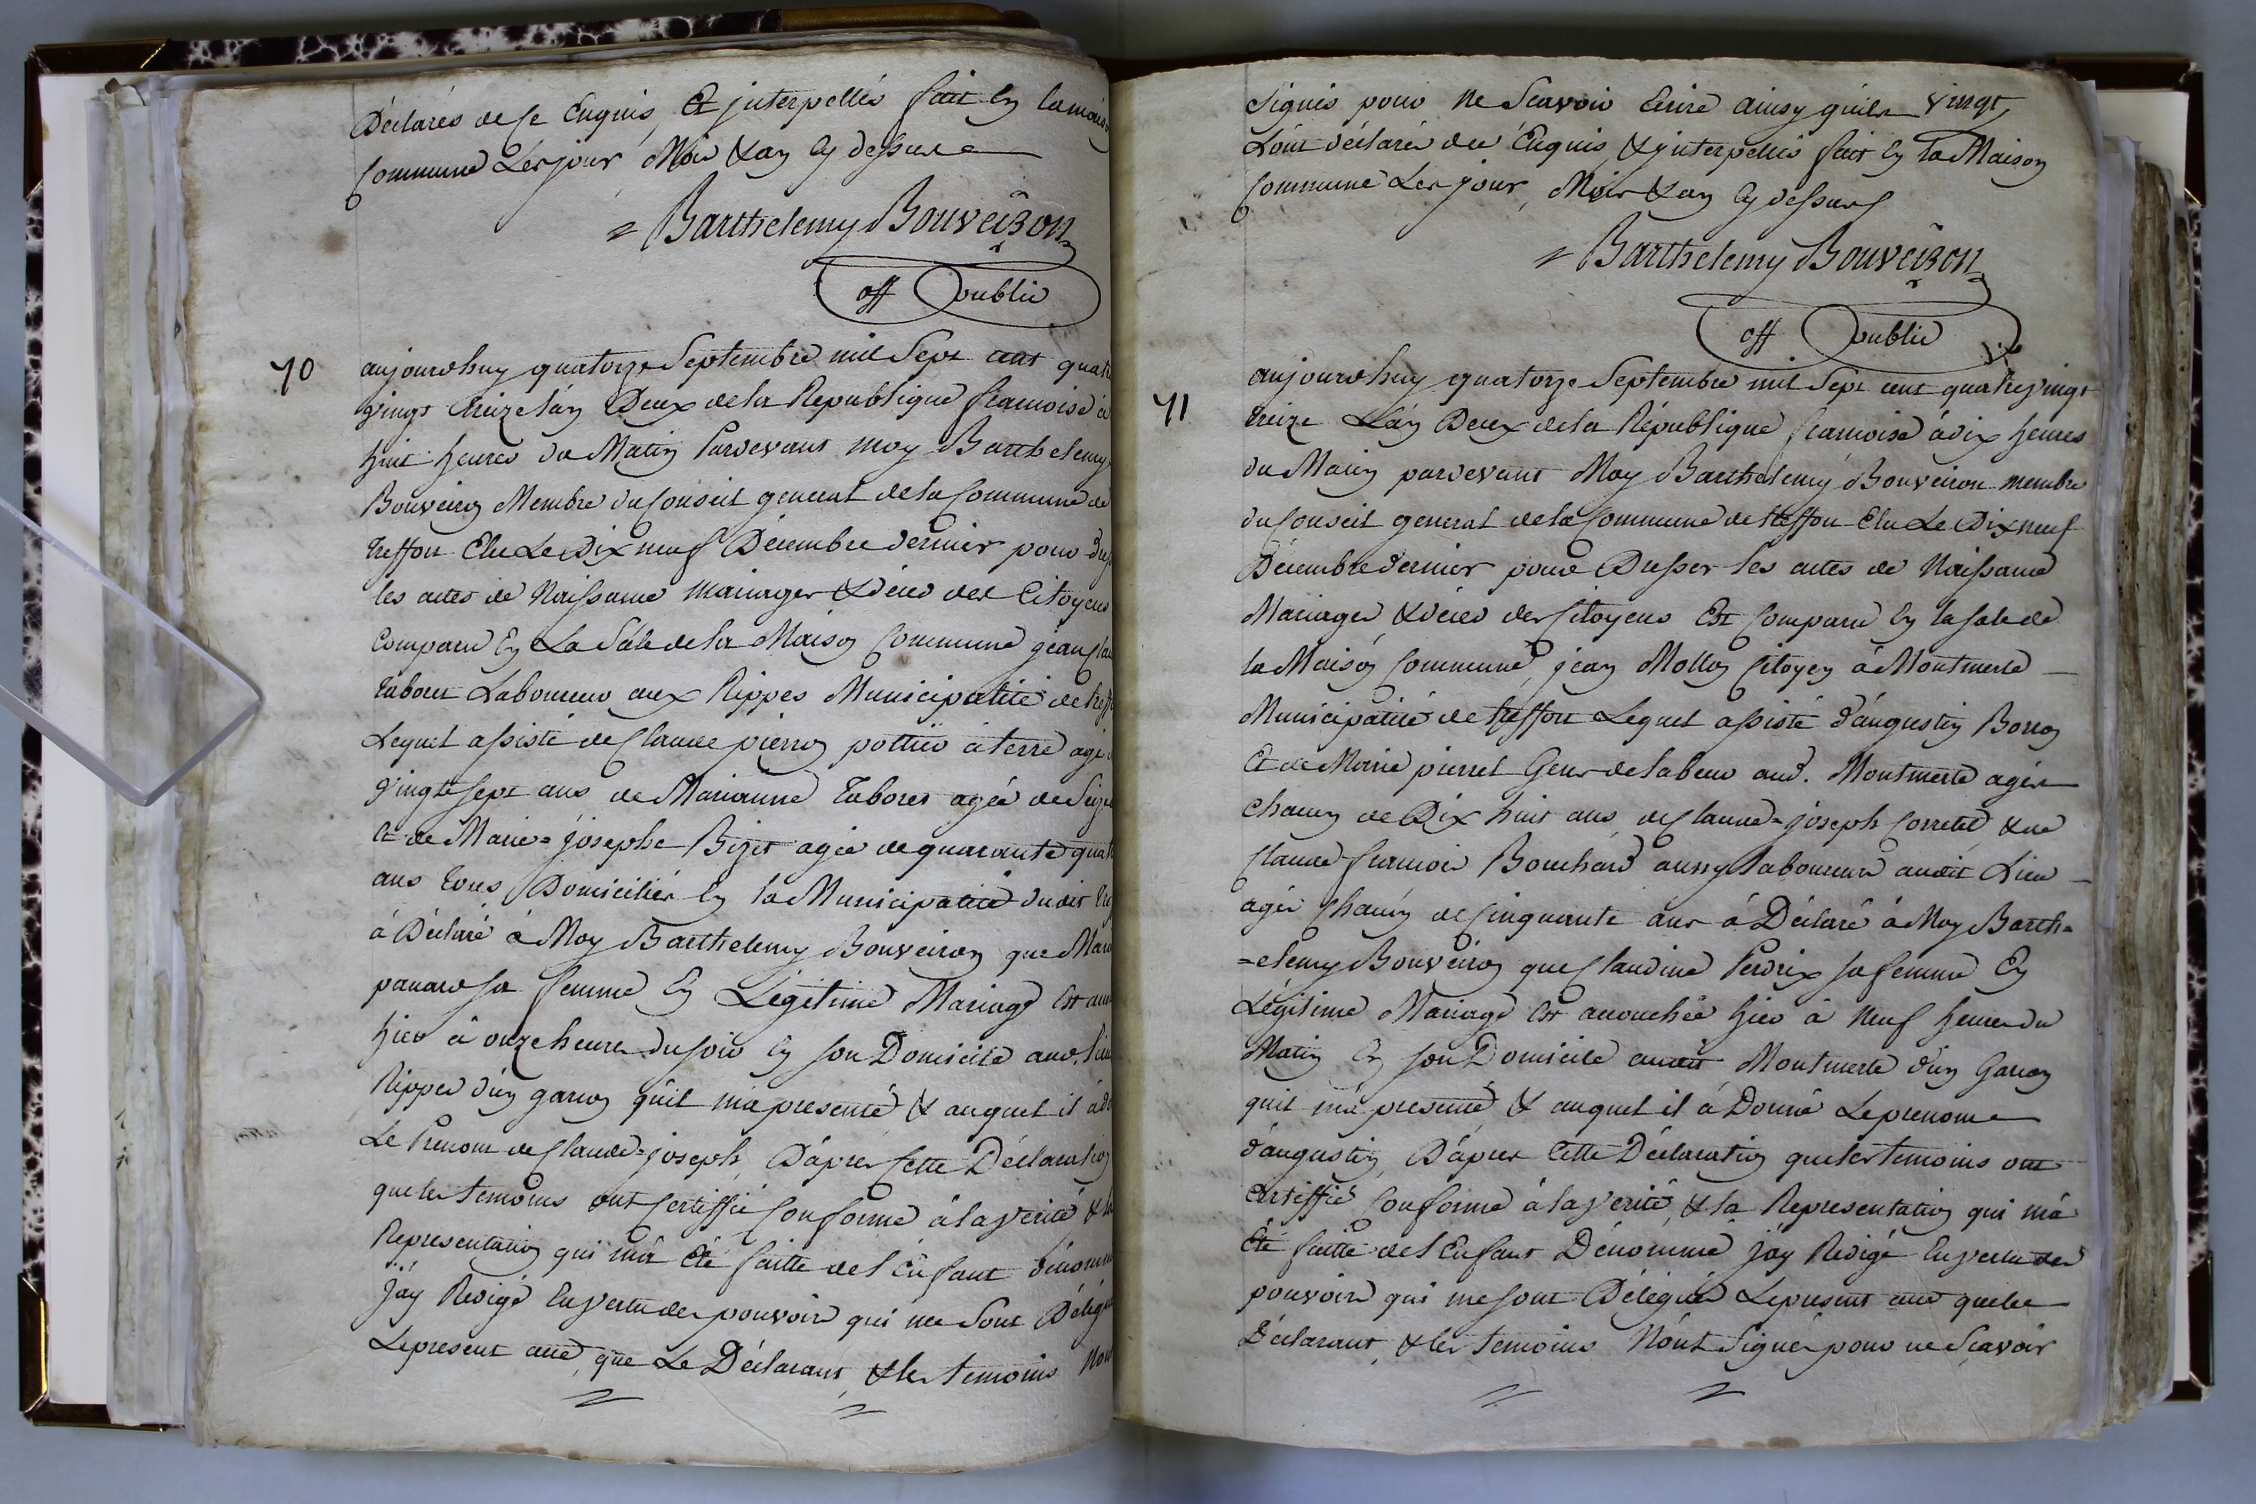 Déclarés de ce Enquis, Et jnterpellés fait en la maiso
Commune Les jour Mois & an cy dessus
Barthelemy Bouveiron
off public
70
aujourdhuy quatorze Septembre mil Sept cent quatre
vingt treize l'an Deux de la Republique francoise à
huit heures du Matin Pardevant moy Barthelemy
Bouveiron Membre du Conseil general de la Commune de
treffort Elu Le Dix neuf Décembre dernier pour
les actes de Naissance mariages & déces des Citoyens
Comparu En La Sale de la Maison Commune jean
taboret Laboureur aux Rippes Municipalité de
Lequel assisté de Claude pierron pottier à terre agé
Vingt Sept ans de Marianne taboret agée de Seize
Et de Marie=josephe Bizet agée de quarante quat
ans tous Domiciliés En la Municipalité dudit
à Déclaré à Moy Barthelemy Bouveiron que
panard sa femme En Légitime Mariage Est
hier à onze heures du soir En son Domicile aud. lieu
Rippes d'un garcon qu'il m'a presenté & auquel il à
Le Prenom de Claude=joseph, D'apres Cette Déclaration
que les temoins ont Certiffié Conforme à la verité &
Representation qui m'a Eté faitte de l'Enfant dénommé
J'ay Redigé En vertu des pouvoirs qui me Sont
Le present acte, que Le Déclarant, & les temoins
Signés pour Ne Scavoir Ecrire ainsy qu'ils vingt
L'ont déclarés de Enquis, & jnterpellés fait En la Maison
Commune Les jour, Mois & an cy dessus
Barthelemy Bouveiron
off public
71
aujourdhuy quatorze Septembre mil Sept cent quatre vingt
treize L'an Deux de la République francoise à dix heures
du Matin pardevant Moy Barthélemy Bouveiron membre
du Conseil general de la Commune de treffort Elu Le Dix neuf
Décembre dernier pour Dresser les actes de Naissance
Mariages & déces des Citoyens Est Comparu En la sale de
la Maison Commune, jean Mollon Citoyen à Montmerle
Municipalité de treffort Lequel assisté d'augustin Borron
Et de Marie pierrel Gens de labeur aud. Montmerle agés
Chacun de Dix huit ans, de Claude=joseph Corretel, & de
Claude francois Bouchard aussy laboureurs audit Lieu
agés Chacun de Cinquante ans à Déclaré à Moy Barth=
=elemy Bouveiron que Claudine Perdrix sa femme En
Légitime Mariage Est accouchée hier à Neuf heures du
Matin En son Domicile audit Montmerle d'un Garcon
qu'il m'a presenté, & auquel il à Donné Le prenom
d'augustin, D'apres Cette Déclaration que les temoins ont
Certiffié Conforme à la verité, & la Representation qui m'a
Eté faitte de l'Enfant Dénommé j'ay Redigé En vertu des
pouvoirs qui me sont Délégués Le present acte que le
Déclarant, & les temoins N'ont Signés pour ne Scavoir